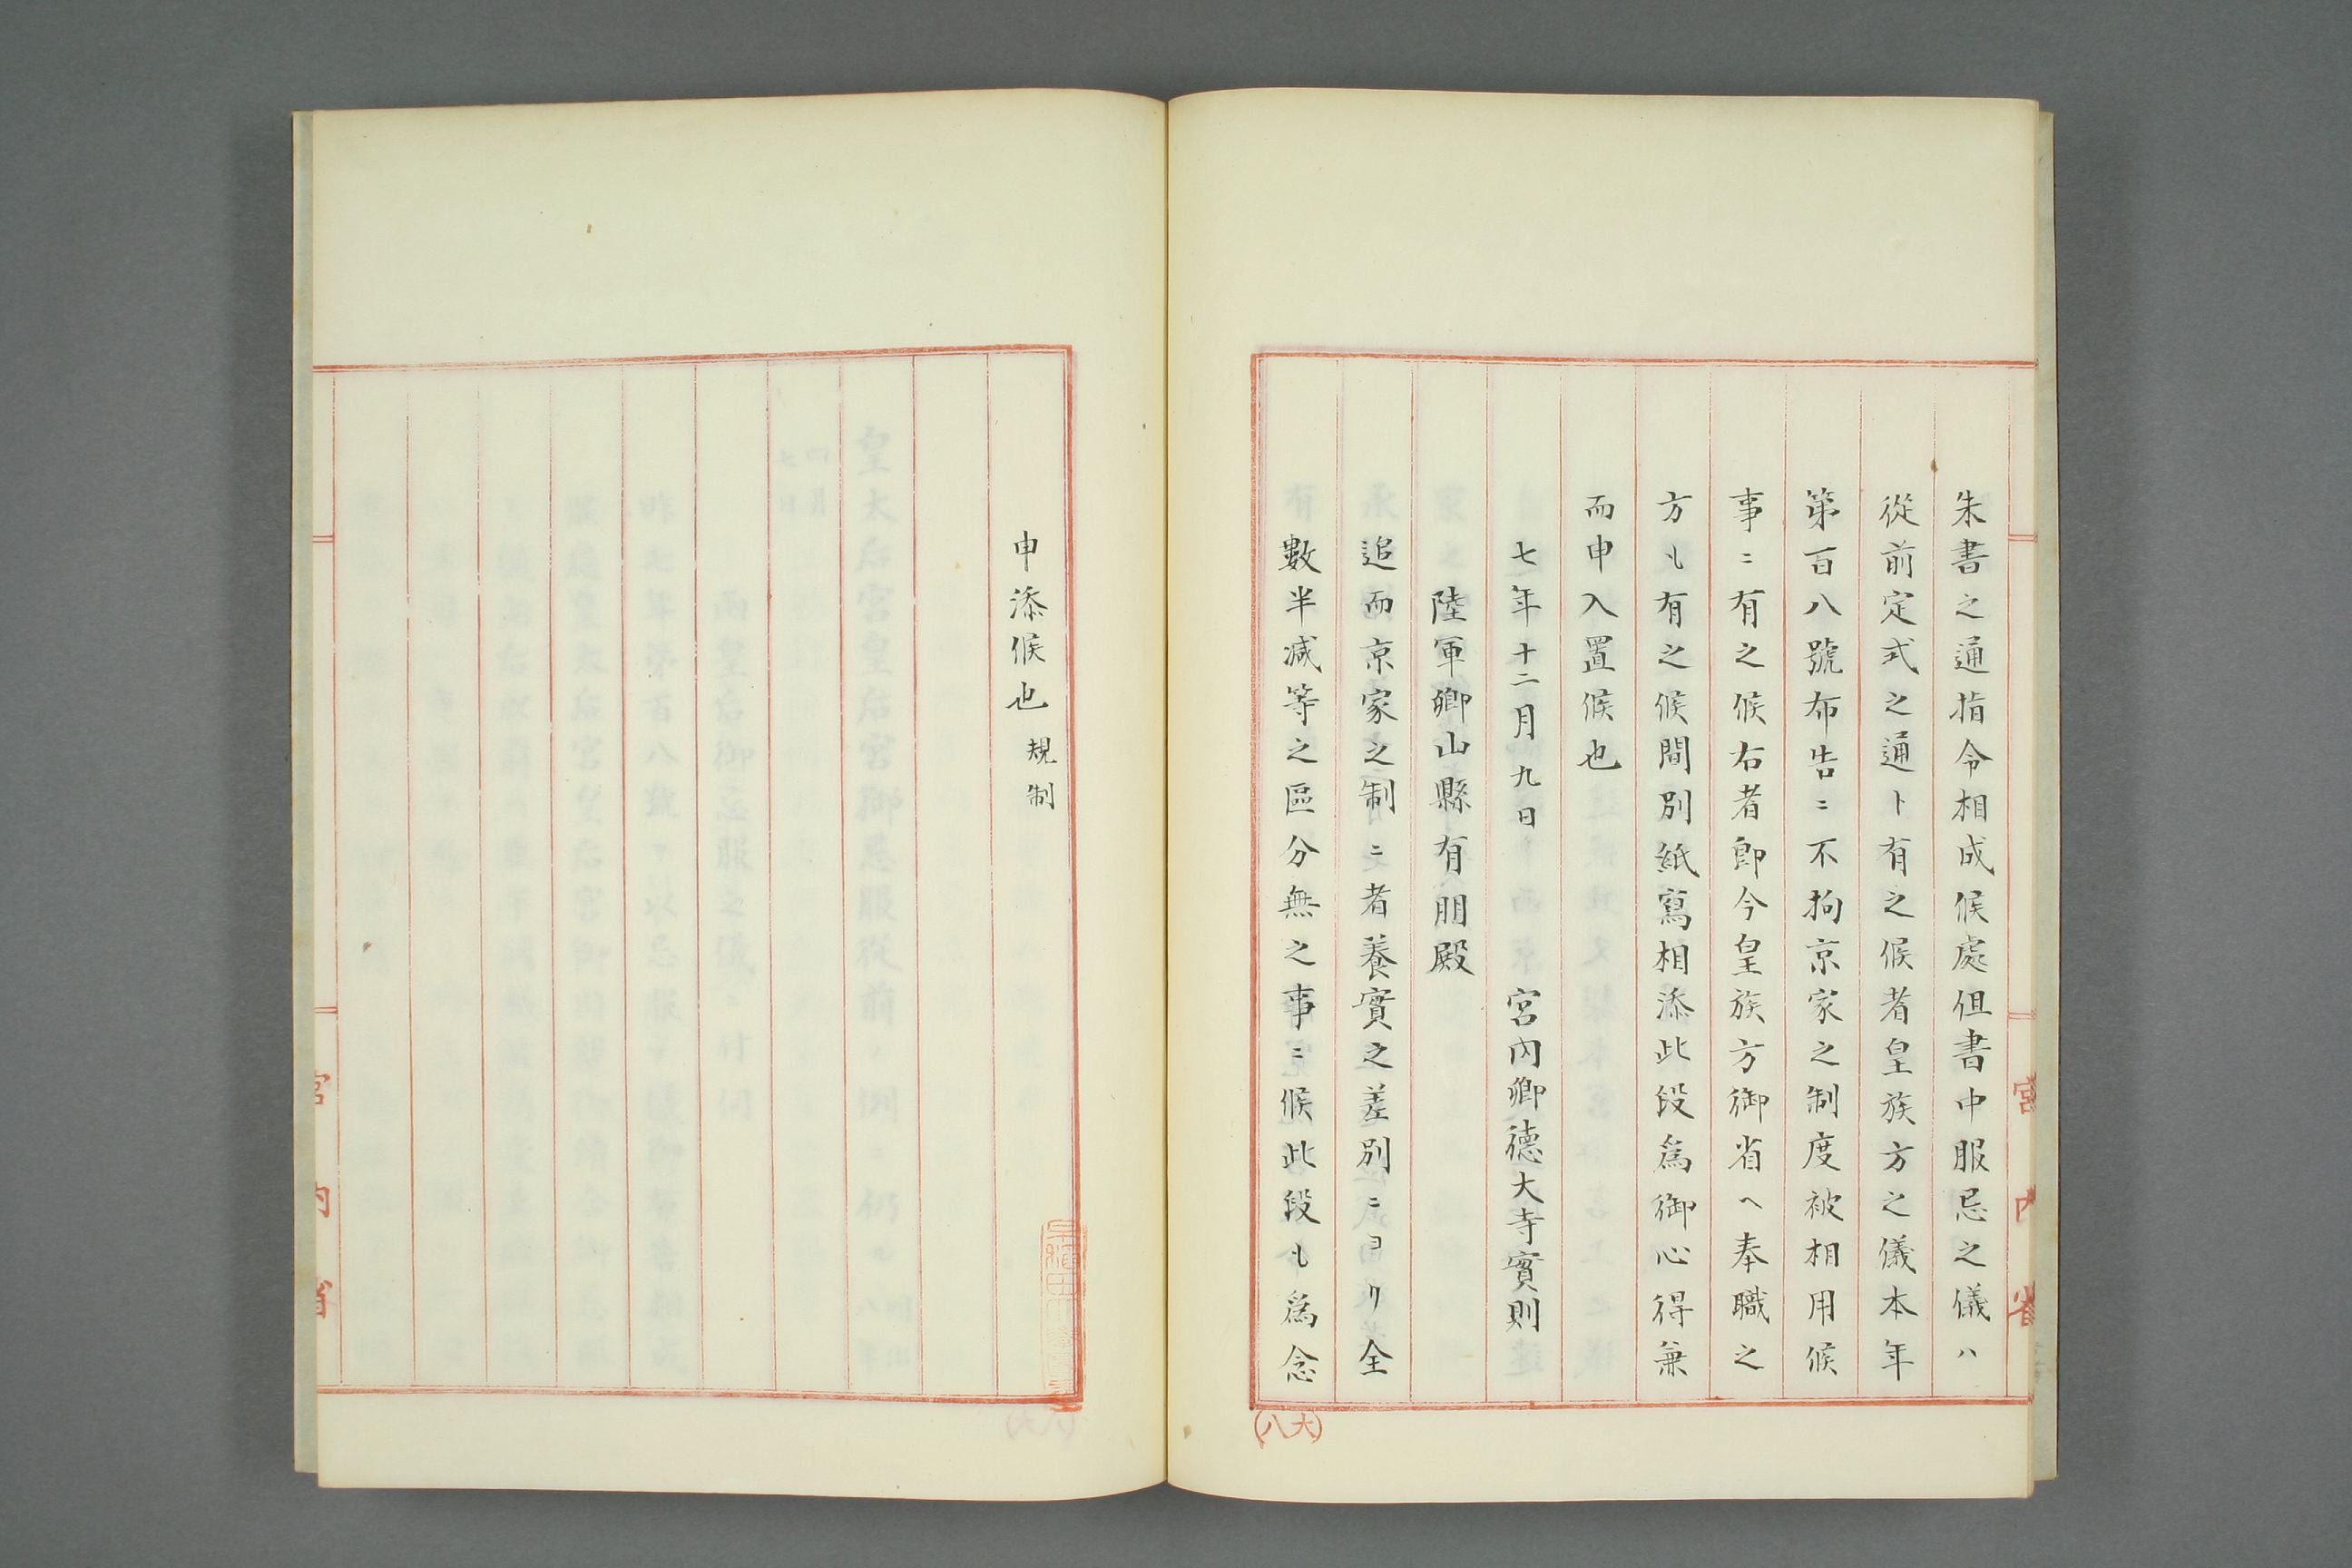 朱書之通指令相成候處但書中服忌之儀ハ
從前定式之通ト有之候者皇族方之儀本年
第百八號布告ニ不拘京家之制度被相用候
事ニ有之候右者卽今皇族方御省ヘ奉職之
方モ有之候間別紙寫相添此段爲御心得兼
而申入置候也
七年十二月九日 宮内卿德大寺實則
陸軍卿山縣有朋殿
追而京家之制ニ者養實之差別ニヨリ全
數半減等之區分無之事ニ候此段モ爲念
宮内省
(大八)
申添候也 規制
宮内省